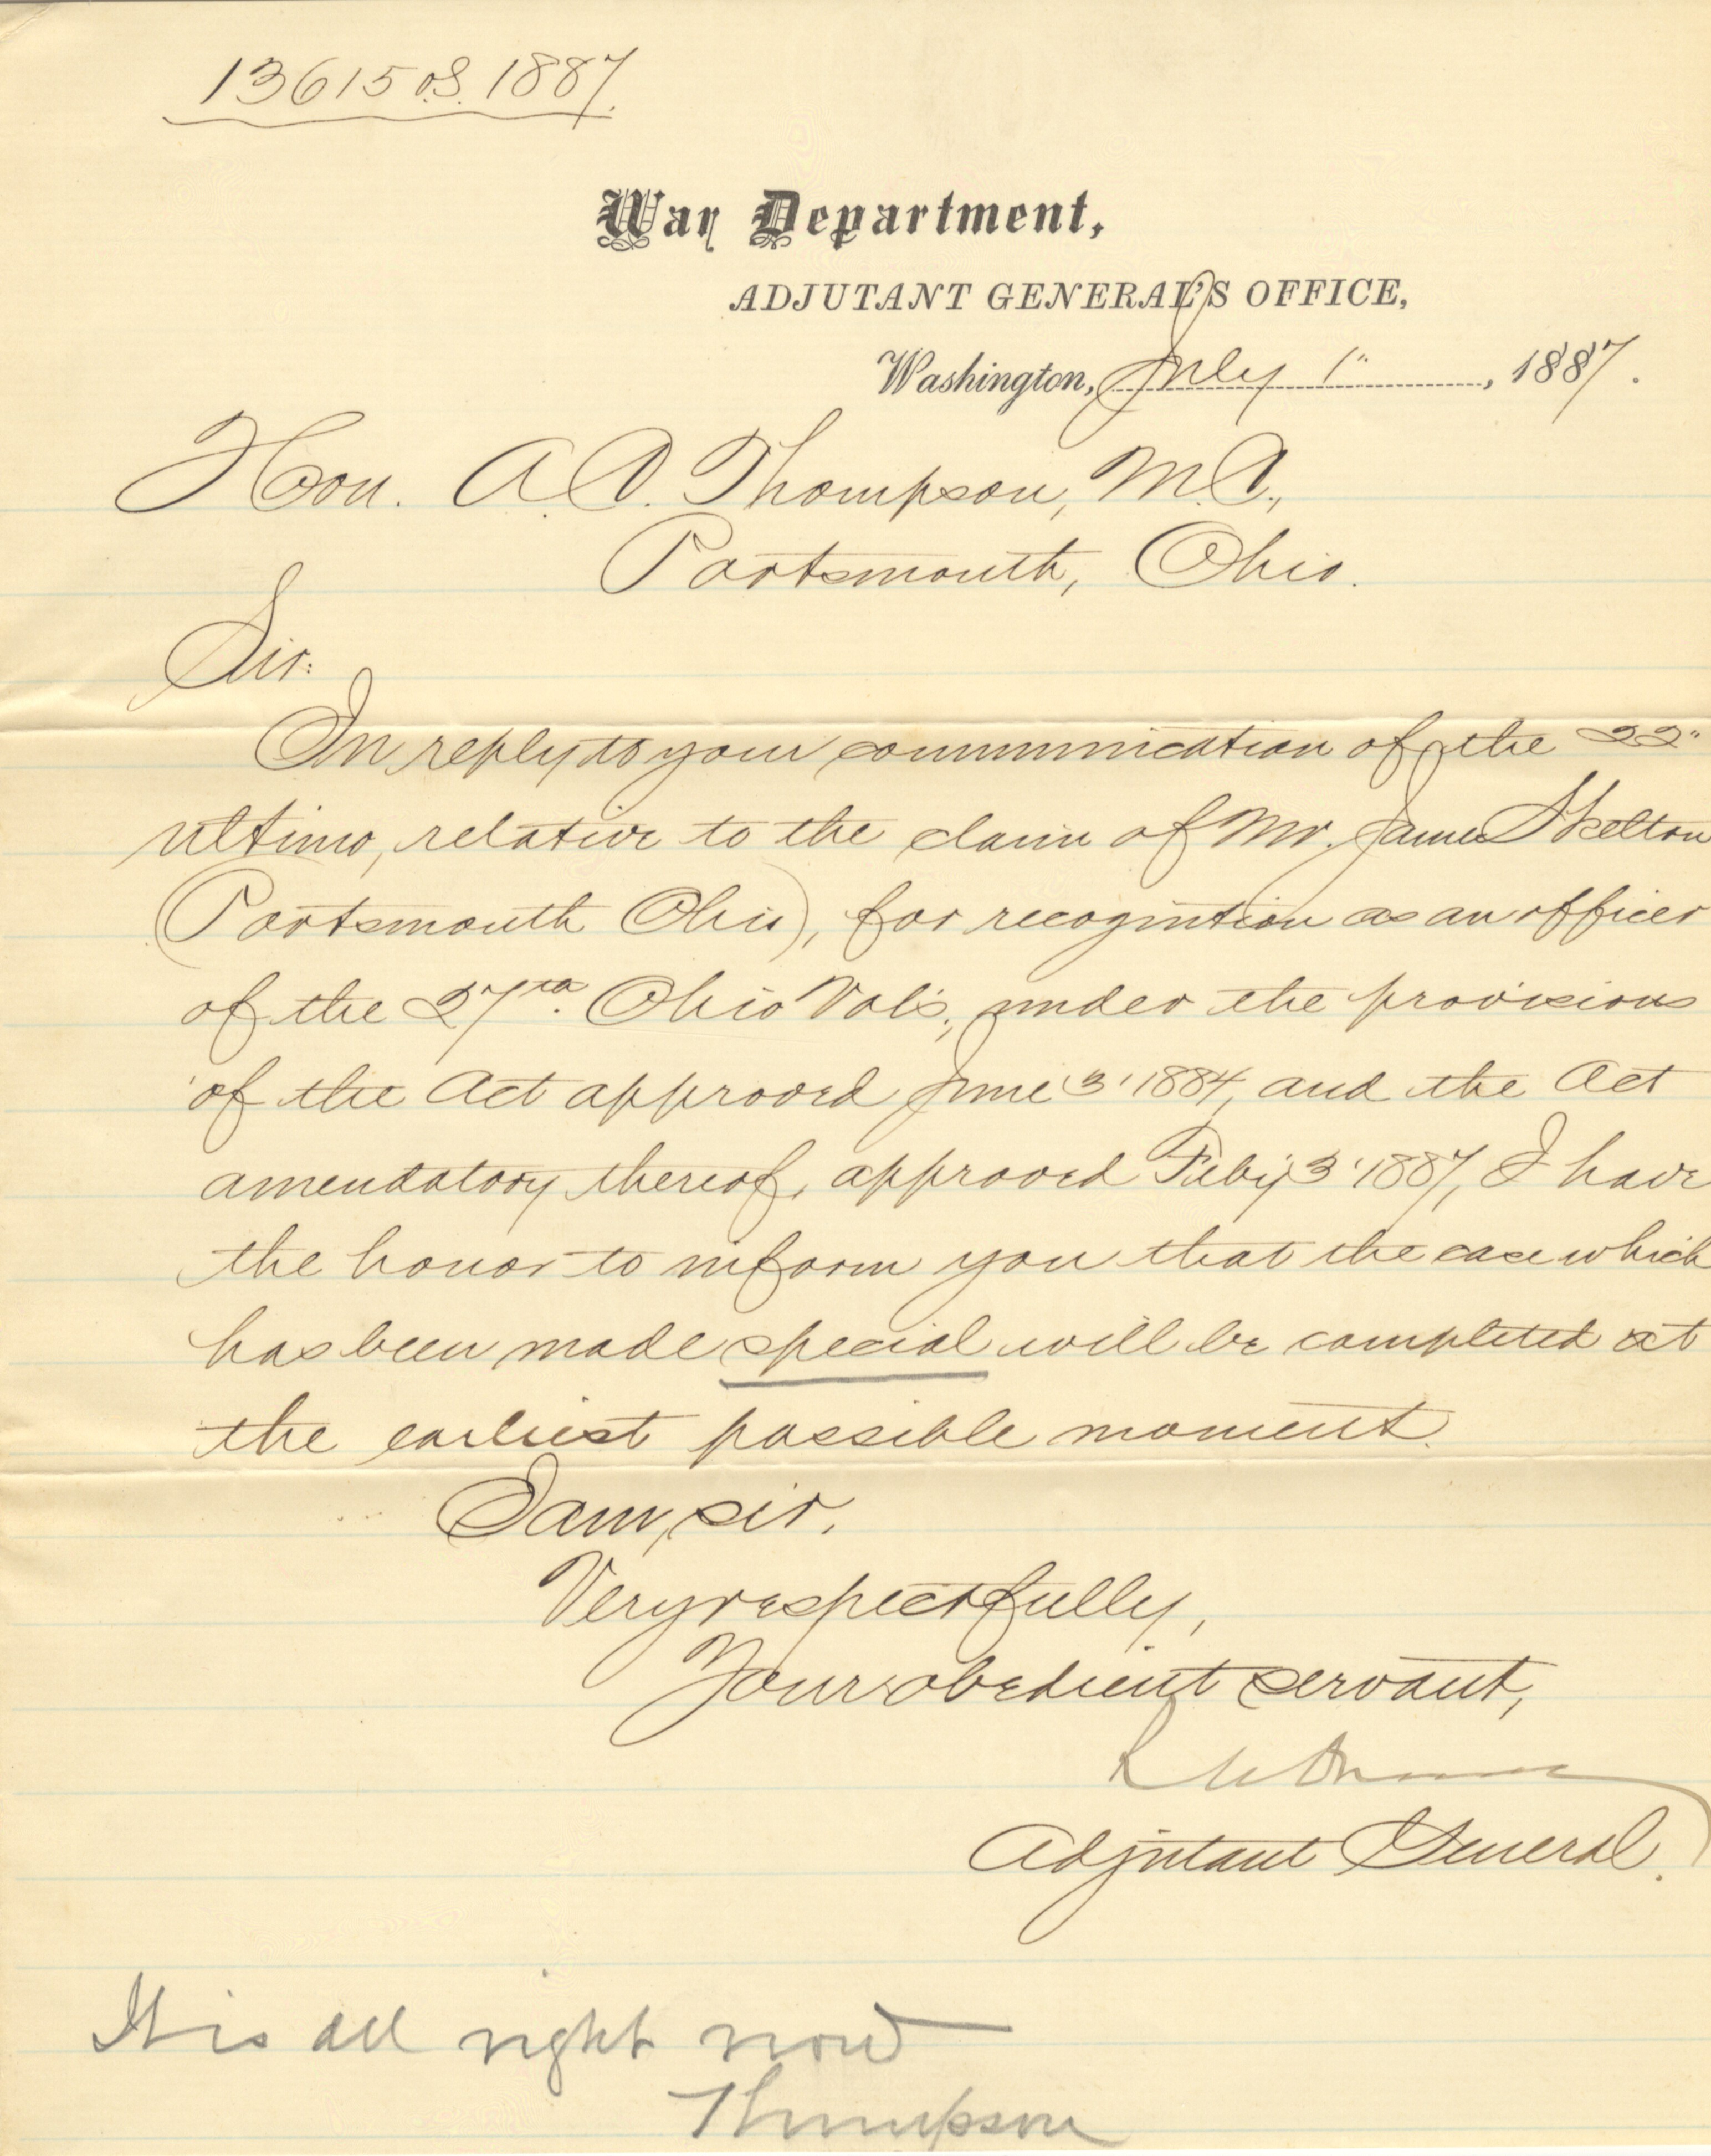 13615 O.S. 1887.
War Department,
ADJUTANT GENERAL'S OFFICE,
Washington, July 1", 1887.
Hon. A. C. Thompson, M.C.,
Portsmouth, Ohio.
Sir:
In reply to your communication of the 22"
ultimo, relative to the claim of Mr. James Skelton
(Portsmouth Ohio), for recognition as an officer
of the 27th Ohio Vols, under the provisions
of the Act approved June 3' 1884, and the Act
amendatory thereof, approved Feby 3' 1887, I have
the honor to inform you that the case which
has been made special will be completed at
the earliest possible moment.
I am, sir,
Very respectfully,
Your obedient servant,
Adjutant General.
It is all right now
Thompson